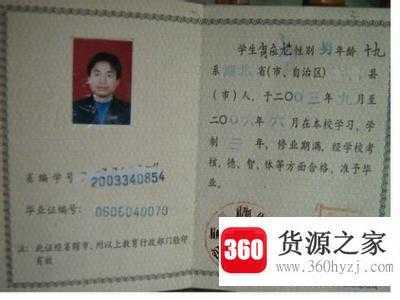 省编学号 2003340854
毕业证编号: 0606040070
注: 此证经省辖市、州以上教育行政部门验印
有效
学生 性别 男 年龄 十九
系 湖北 省(市、自治区) 县
(市)人,于二〇〇三年九月至
二〇〇六年六月在本校学习,学
制 三 年,修业期满,经学校考
核,德、智、体等方面合格,准予毕
业。
360 货源之家
www.360hyzj.com